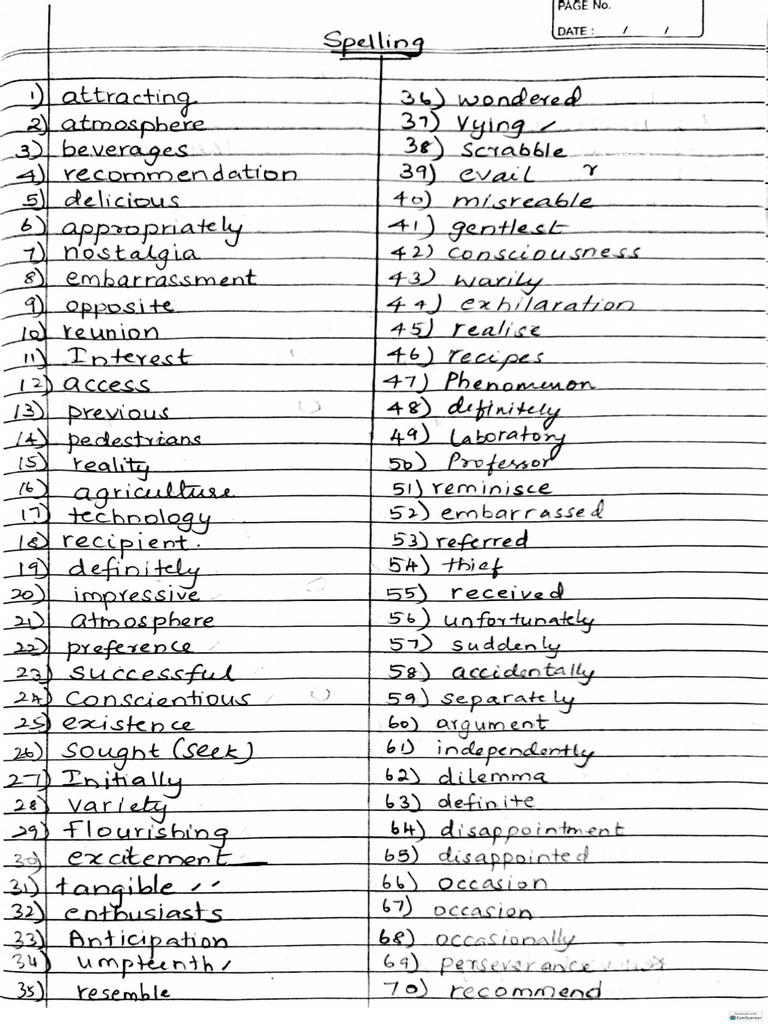 PAGE No.
DATE : / /
Spelling
1) attracting
2) atmosphere
3) beverages
4) recommendation
5) delicious
6) appropriately
7) nostalgia
8) embarrassment
9) opposite
10) reunion
11) Interest
12) access
13) previous
14) pedestrians
15) reality
16) agriculture
17) technology
18) recipient.
19) definitely
20) impressive
21) atmosphere
22) preference
23) successful
24) Conscientious
25) existence
26) Sought (Seek)
27) Initially
28) variety
29) flourishing
30) excitement
31) tangible
32) enthusiasts
33) Anticipation
34) umpteenth
35) resemble
36) wondered
37) Vying
38) Scrabble
39) evail r
40) misreable
41) gentlest
42) consciousness
43) warily
44) exhilaration
45) realise
46) recipes
47) Phenomenon
48) definitely
49) Laboratory
50) Professor
51) reminisce
52) embarrassed
53) referred
54) thief
55) received
56) unfortunately
57) suddenly
58) accidentally
59) separately
60) argument
61) independently
62) dilemma
63) definite
64) disappointment
65) disappointed
66) occasion
67) occasion
68) occasionally
69) perseverance
70) recommend
CamScanner